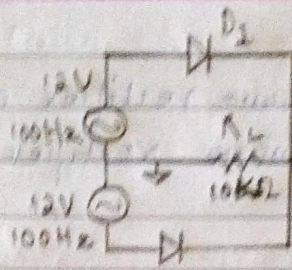 D1
12V
100Hz
RL
10KΩ
12V
100Hz